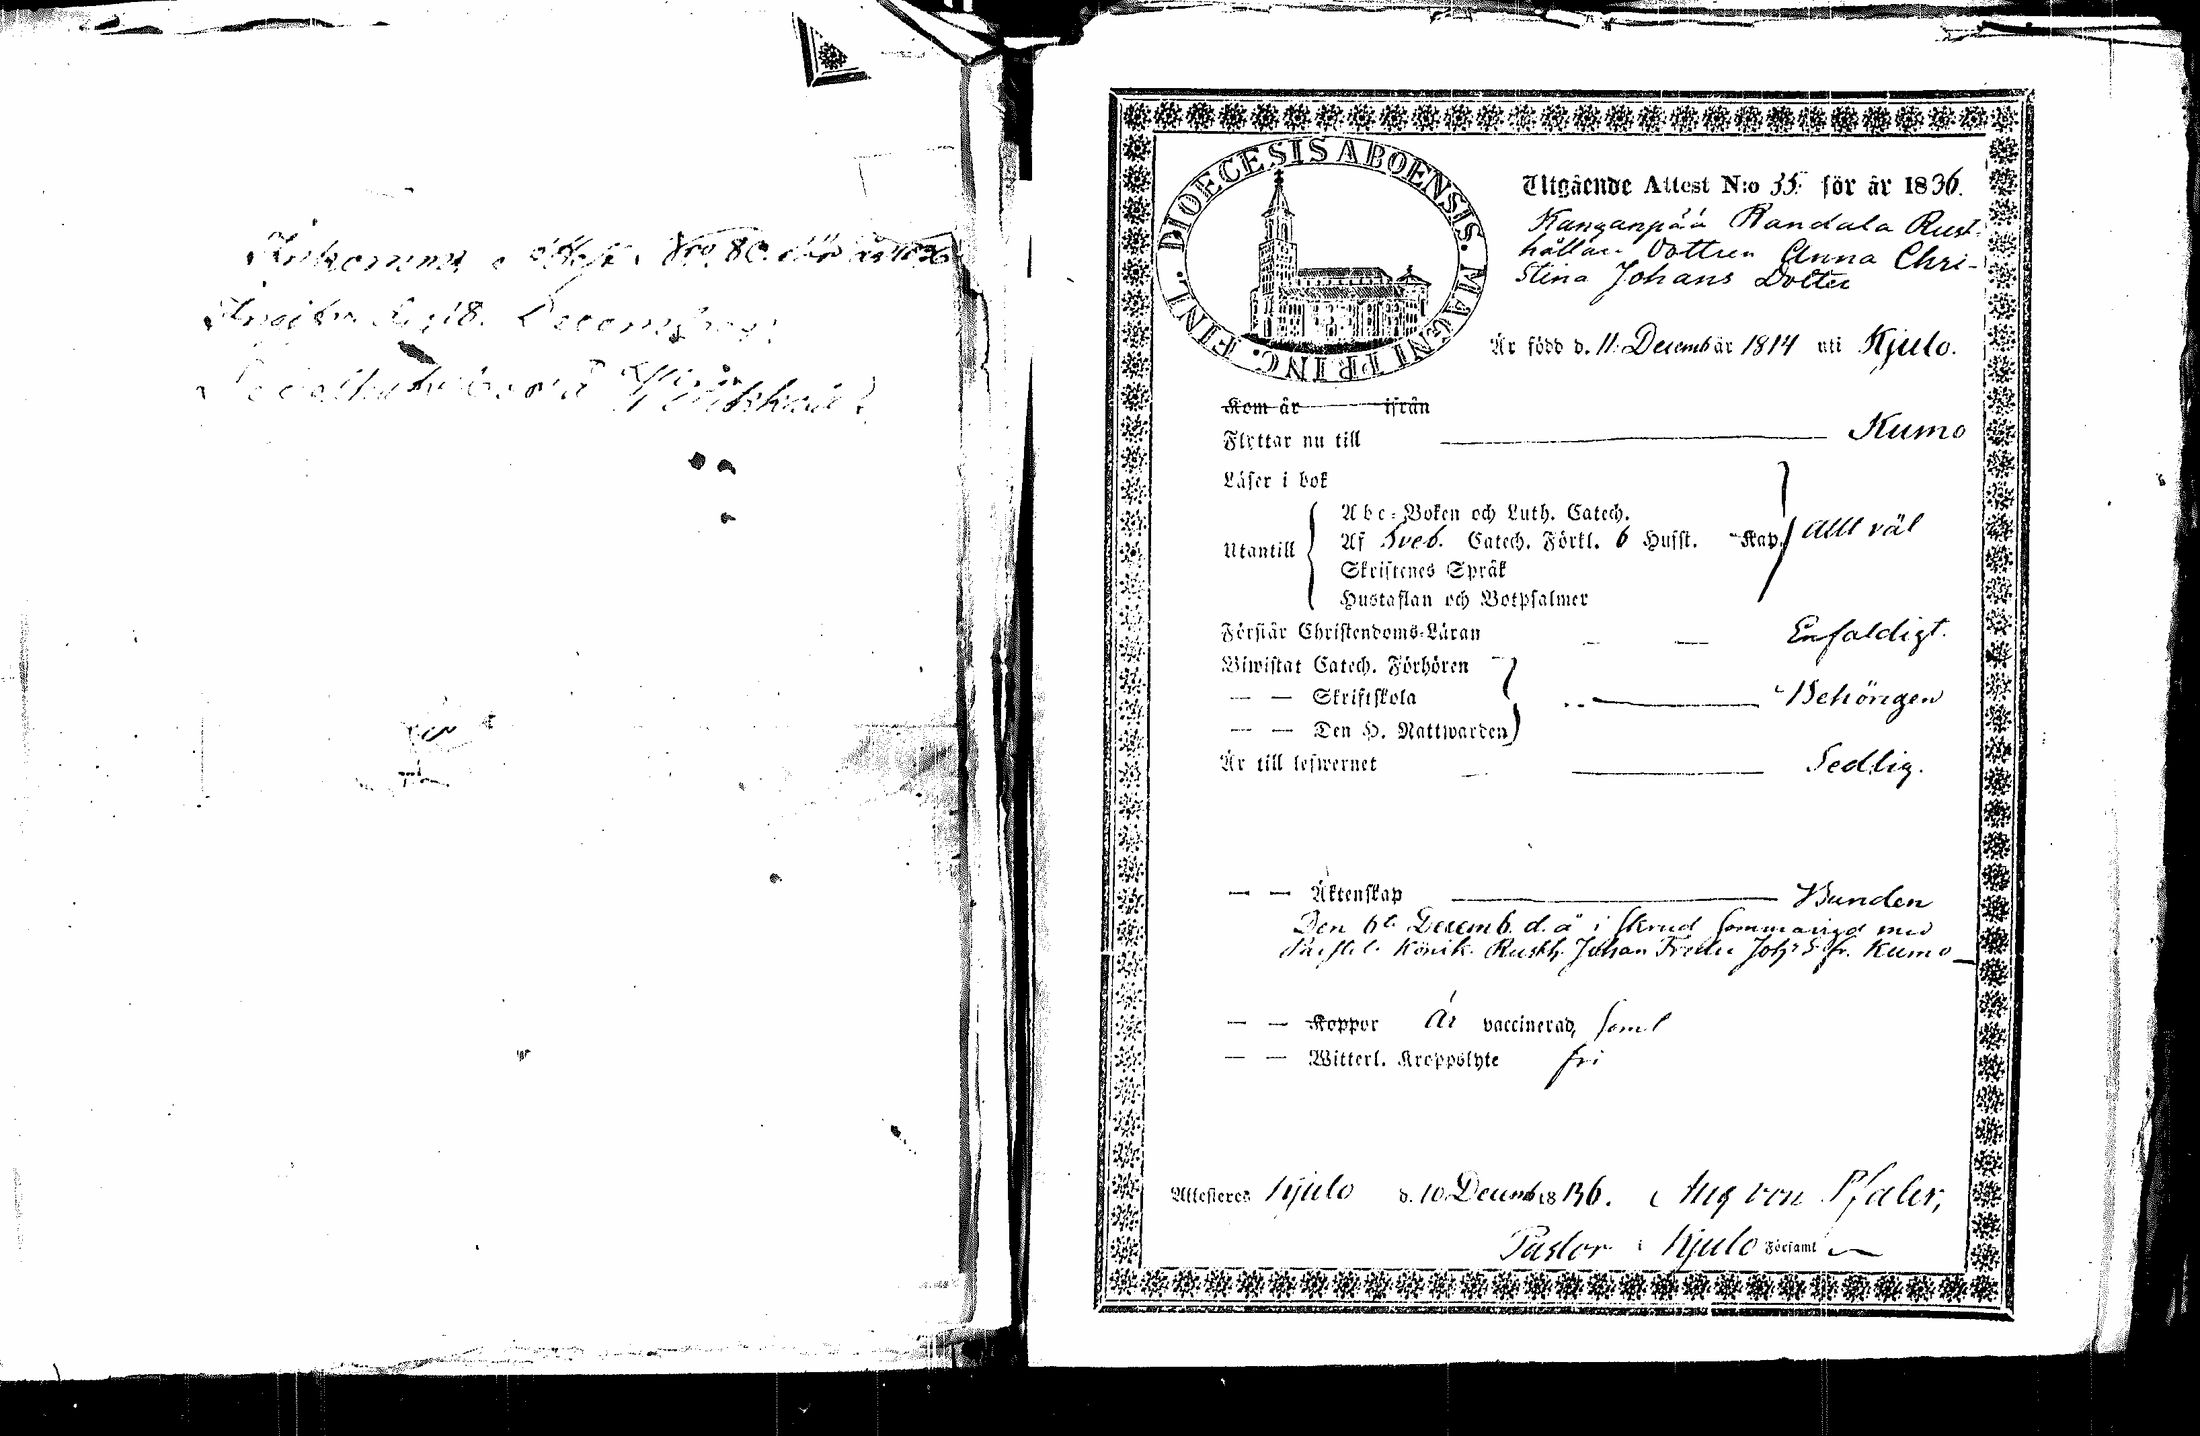 Ankommne Attest Nro. 80. för år 1836
d. 18. December
DIOECESIS ABOENSIS. MAGNI PRINC. FINL.
Utgående Attest N:o 35. för år 1836.
Kanganpää Randala Rust-
hållare Dottren Anna Chri-
stina Johans Dotter
Är född d. 11 Decembr år 1814 uti Kjulo.
Kom år ifrån
Flyttar nu till Kumo
Läser i bok
Abc-Boken och Luth. Catech.
Utantill Af Sveb. Catech. Förkl. 6 Husst. Kap. allt väl
Skriftenes Språk
Hustaflan och Botpsalmer
Förstår Christendoms-Läran Enfaldigt.
Biwistat Catech. Förhören
— — Skriftskola Behörigen
— — Den H. Nattwarden
Är till lefwernet Sedlig.
— — Äktenskap Bunden
Den 6te Decemb. d. å. i Skrud Sammanvigd med
Rusth. Johan Fredr Joh. S. fr. Kumo
— — Koppor Är vaccinerad, samt
— — Witterl. Kroppslyte fri
Attesteres Kjulo d. 10 Decemb 1836. Aug von Pfaler,
Pastor i Kjulo Församl